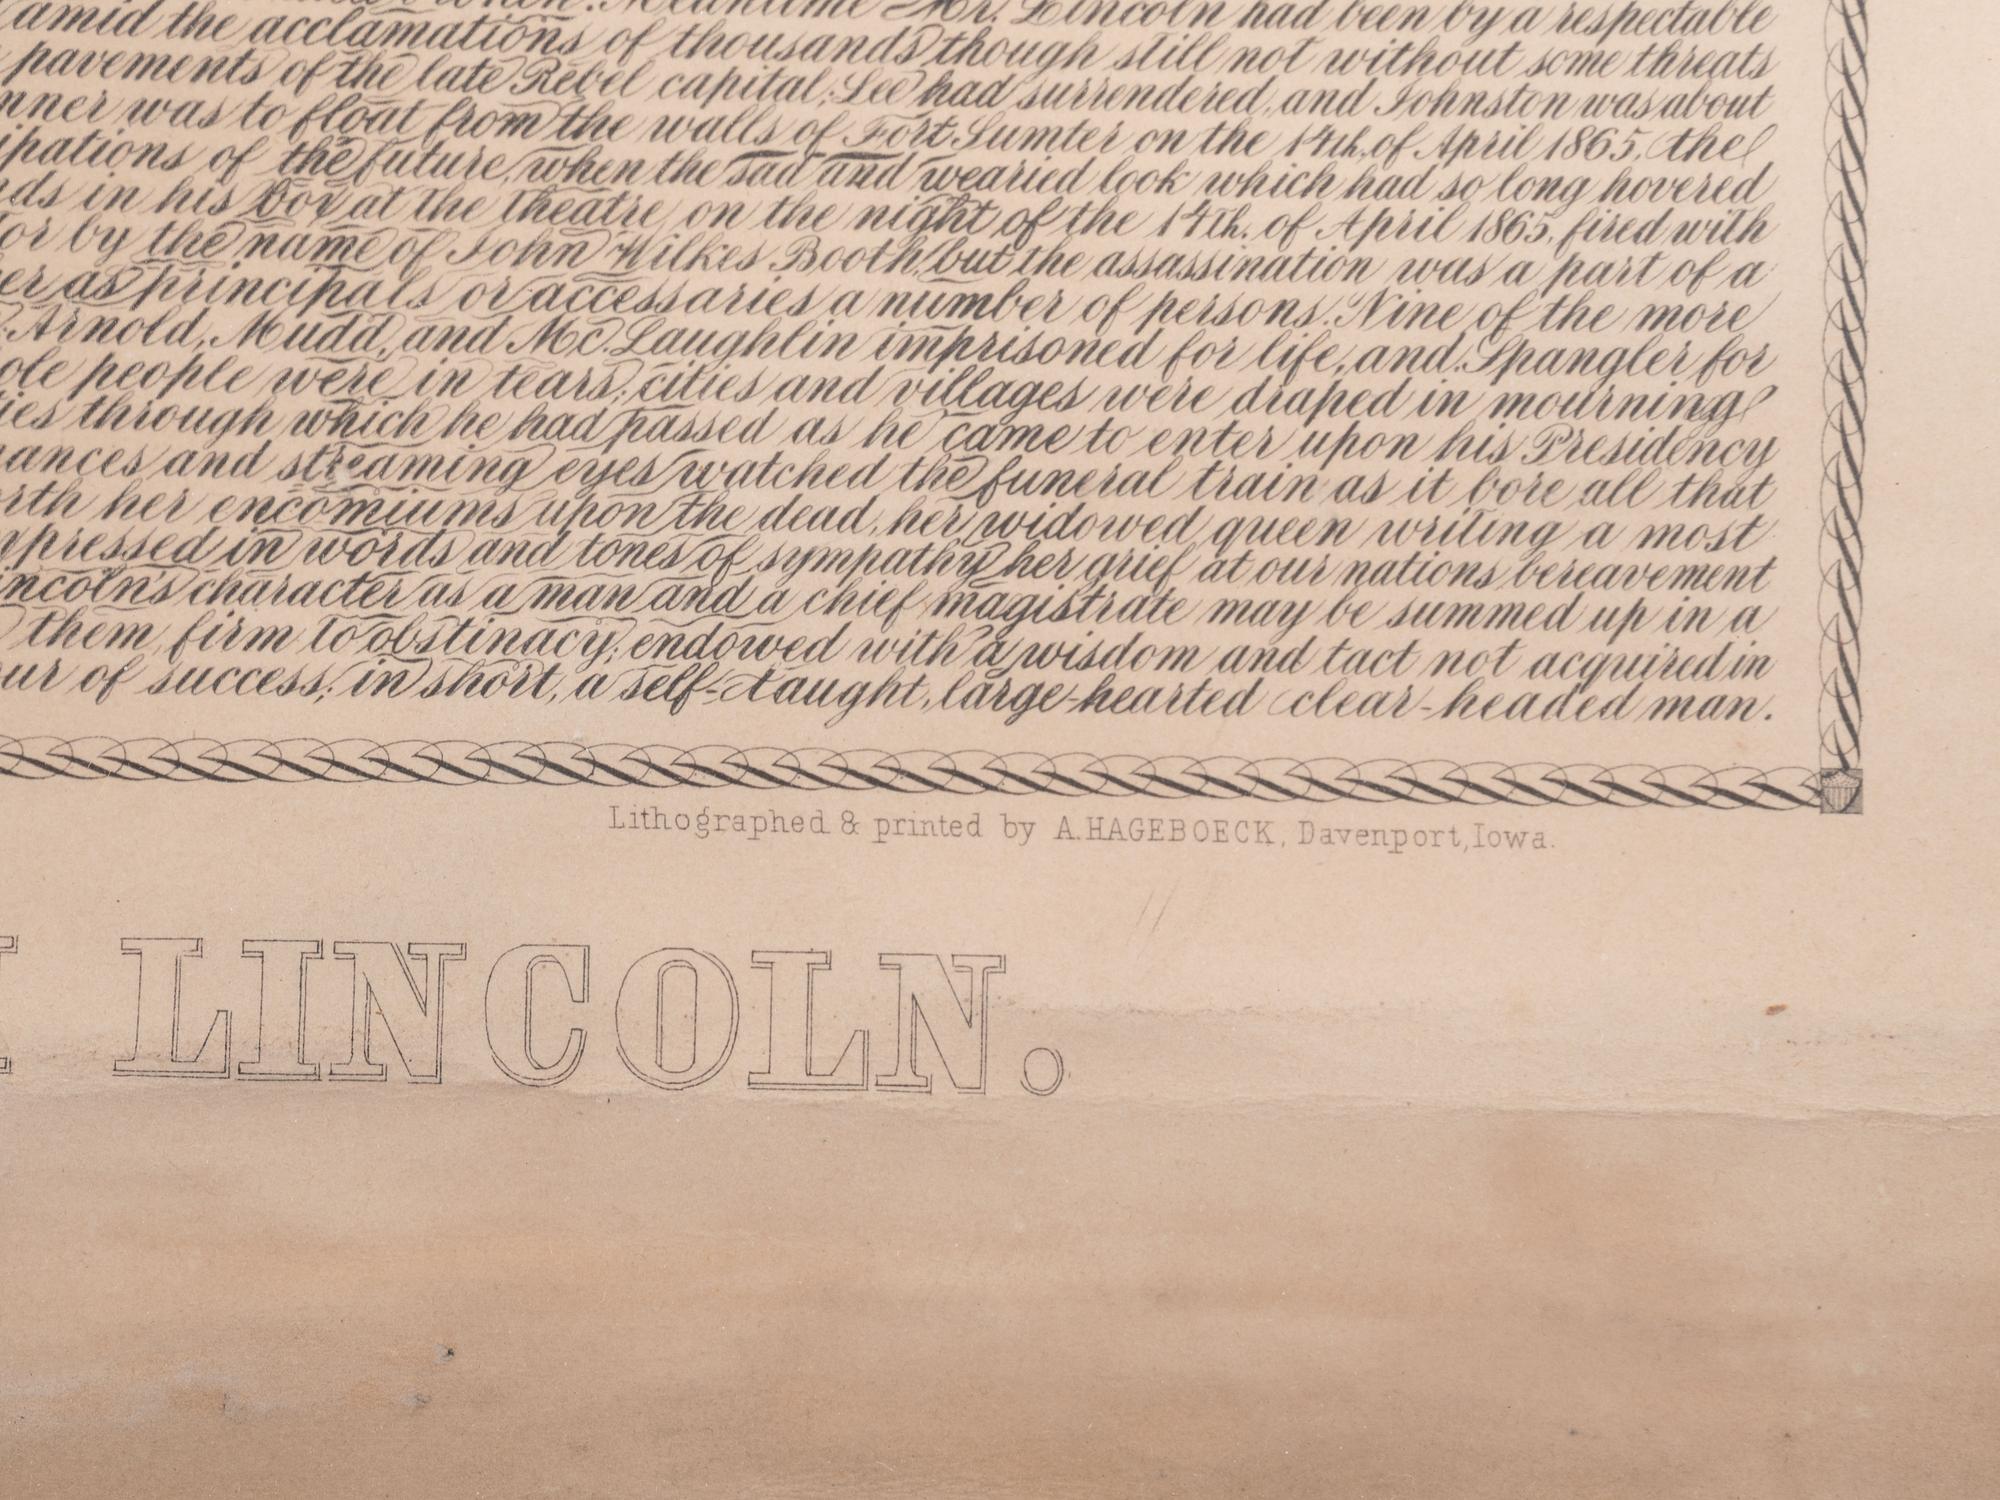 Meantime Mr. Lincoln had been by a respectable
amid the acclamations of thousands though still not without some threats
pavements of the late Rebel capital; Lee had surrendered, and Johnston was about
nner was to float from the walls of Fort Sumter on the 14th. of April 1865, the
ipations of the future, when the sad and wearied look which had so long hovered
ds in his box at the theatre, on the night of the 14th. of April 1865, fired with
or by the name of John Wilkes Booth, but the assassination was a part of a
er as principals or accessaries a number of persons. Nine of the more
Arnold, Mudd, and Mc.Laughlin imprisoned for life, and Spangler for
ole people were in tears; cities and villages were draped in mourning
ies through which he had passed as he came to enter upon his Presidency
ances and streaming eyes watched the funeral train as it bore all that
rth her encomiums upon the dead, her widowed queen writing a most
xpressed in words and tones of sympathy her grief at our nations bereavement
incoln's character as a man and a chief magistrate may be summed up in a
them, firm to obstinacy; endowed with a wisdom and tact not acquired in
ur of success; in short, a self-taught, large-hearted clear-headed man.
Lithographed & printed by A. HAGEBOECK, Davenport, Iowa.
LINCOLN.